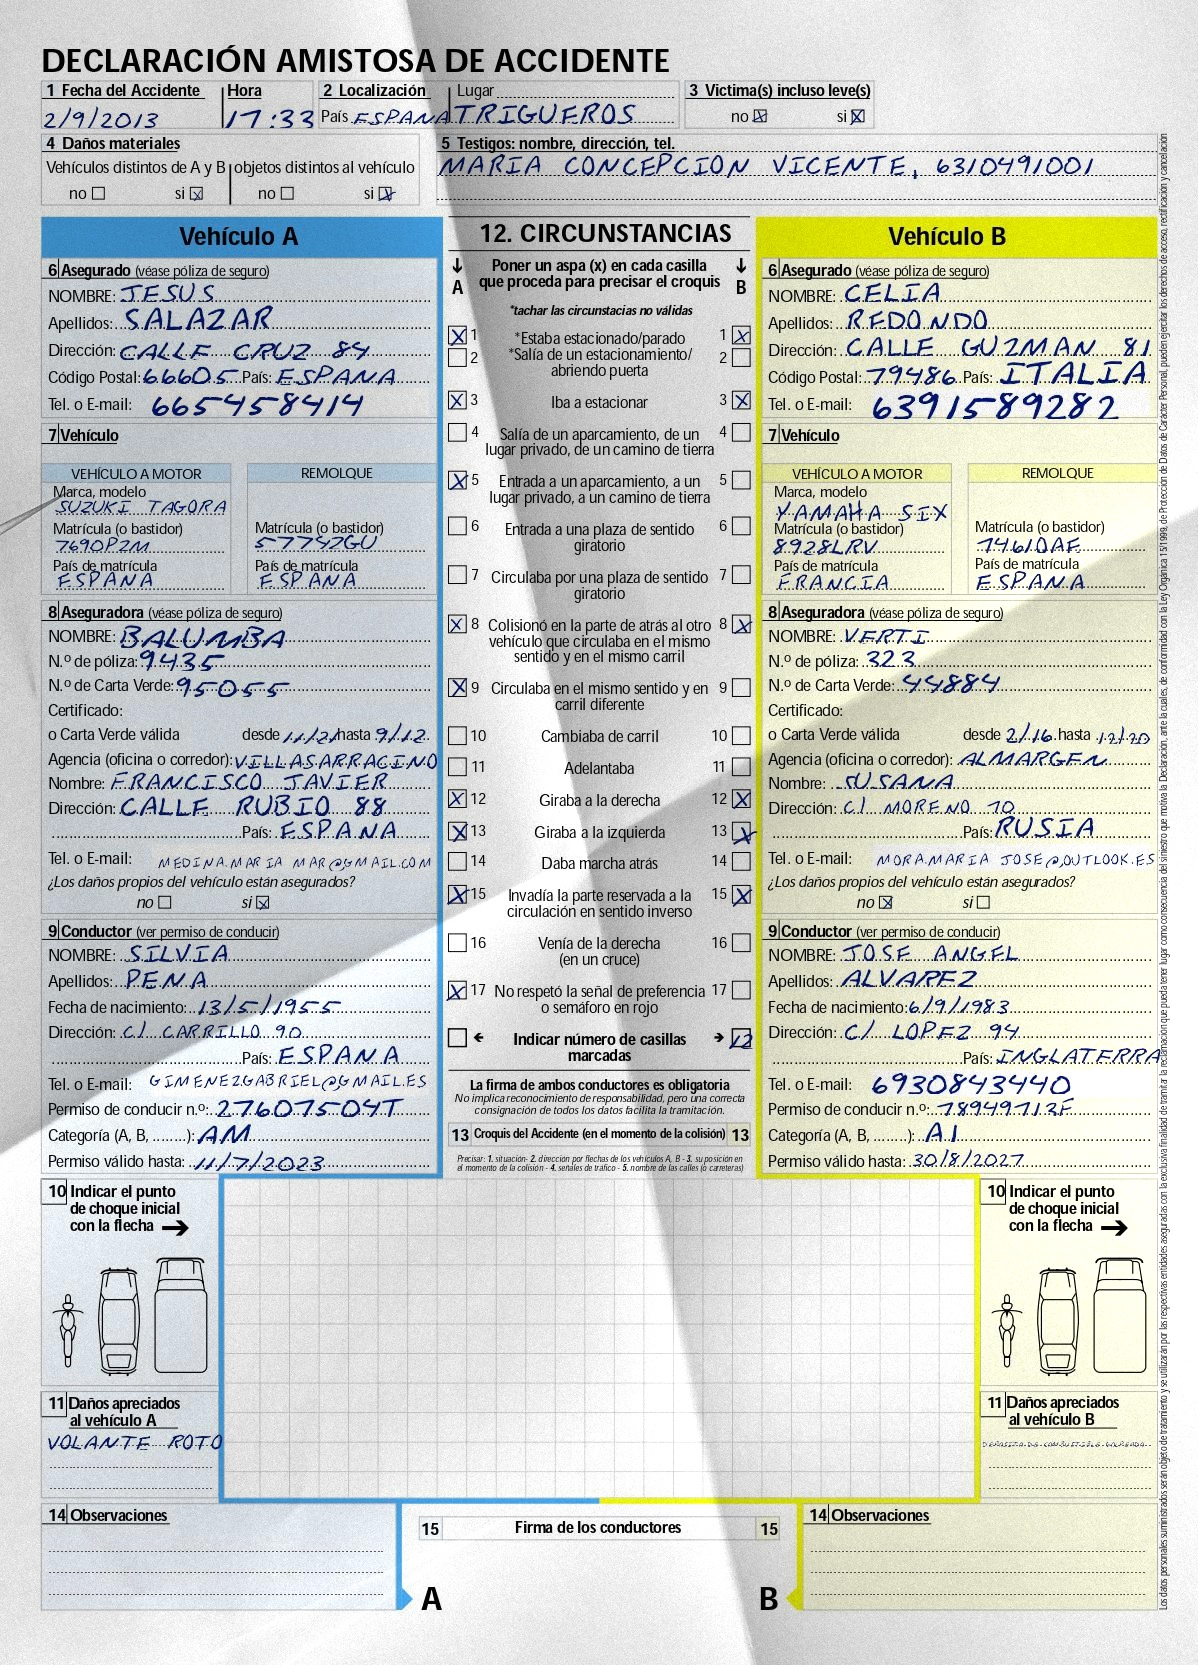 DECLARACIÓN AMISTOSA DE ACCIDENTE
1 Fecha del Accidente Hora 2 Localización Lugar 3 Victima(s) incluso leve(s)
2/9/2013 17:33 País ESPANA TRIGUEROS no si
4 Daños materiales
Vehículos distintos de A y B objetos distintos al vehículo
no si no si
5 Testigos: nombre, dirección, tel.
MARIA CONCEPCION VICENTE, 6310491001
Vehículo A
6 Asegurado (véase póliza de seguro)
NOMBRE: JESUS
Apellidos: SALAZAR
Dirección: CALLE CRUZ 84
Código Postal: 66605 País: ESPANA
Tel. o E-mail: 665458414
7 Vehículo
VEHÍCULO A MOTOR REMOLQUE
Marca, modelo
SUZUKI TAGORA
Matrícula (o bastidor) Matrícula (o bastidor)
7690PZM 57752GU
País de matrícula País de matrícula
ESPANA ESPANA
8 Aseguradora (véase póliza de seguro)
NOMBRE: BALUMBA
N.º de póliza: 9435
N.º de Carta Verde: 95055
Certificado:
o Carta Verde válida desde 11/21 hasta 9/12
Agencia (oficina o corredor): VILLASARRACINO
Nombre: FRANCISCO JAVIER
Dirección: CALLE RUBIO 88
País: ESPANA
Tel. o E-mail: MEDINA.MARIA MAR@GMAIL.COM
¿Los daños propios del vehículo están asegurados?
no si
9 Conductor (ver permiso de conducir)
NOMBRE: SILVIA
Apellidos: PENA
Fecha de nacimiento: 13/5/1955
Dirección: C/ CARRILLO 90
País: ESPANA
Tel. o E-mail: GIMENEZGABRIEL@GMAIL.ES
Permiso de conducir n.º: 27607504T
Categoría (A, B, ........): AM
Permiso válido hasta: 11/7/2023
12. CIRCUNSTANCIAS
Poner un aspa (x) en cada casilla
A que proceda para precisar el croquis B
*tachar las circunstacias no válidas
1 *Estaba estacionado/parado 1
2 *Salía de un estacionamiento/ 2
abriendo puerta
3 Iba a estacionar 3
4 Salía de un aparcamiento, de un 4
lugar privado, de un camino de tierra
5 Entrada a un aparcamiento, a un 5
lugar privado, a un camino de tierra
6 Entrada a una plaza de sentido 6
giratorio
7 Circulaba por una plaza de sentido 7
giratorio
8 Colisionó en la parte de atrás al otro 8
vehículo que circulaba en el mismo
sentido y en el mismo carril
9 Circulaba en el mismo sentido y en 9
carril diferente
10 Cambiaba de carril 10
11 Adelantaba 11
12 Giraba a la derecha 12
13 Giraba a la izquierda 13
14 Daba marcha atrás 14
15 Invadía la parte reservada a la 15
circulación en sentido inverso
16 Venía de la derecha 16
(en un cruce)
17 No respetó la señal de preferencia 17
o semáforo en rojo
Indicar número de casillas 12
marcadas
La firma de ambos conductores es obligatoria
No implica reconocimiento de responsabilidad, pero una correcta
consignación de todos los datos facilita la tramitación.
13 Croquis del Accidente (en el momento de la colisión) 13
Precisar: 1. situación- 2. dirección por flechas de los vehículos A, B - 3. su posición en
el momento de la colisión - 4. señales de tráfico - 5. nombre de las calles (o carreteras)
Vehículo B
6 Asegurado (véase póliza de seguro)
NOMBRE: CELIA
Apellidos: REDONDO
Dirección: CALLE GUZMAN 81
Código Postal: 79486 País: ITALIA
Tel. o E-mail: 6391589282
7 Vehículo
VEHÍCULO A MOTOR REMOLQUE
Marca, modelo
YAMAHA SIX
Matrícula (o bastidor) Matrícula (o bastidor)
8928LRV 7461DAE
País de matrícula País de matrícula
FRANCIA ESPANA
8 Aseguradora (véase póliza de seguro)
NOMBRE: VERTI
N.º de póliza: 323
N.º de Carta Verde: 44884
Certificado:
o Carta Verde válida desde 2/16 hasta 12/20
Agencia (oficina o corredor): ALMARGEN
Nombre: SUSANA
Dirección: C/ MORENO 70
País: RUSIA
Tel. o E-mail: MORA.MARIA JOSE@OUTLOOK.ES
¿Los daños propios del vehículo están asegurados?
no si
9 Conductor (ver permiso de conducir)
NOMBRE: JOSE ANGEL
Apellidos: ALVAREZ
Fecha de nacimiento: 6/9/1983
Dirección: C/ LOPEZ 94
País: INGLATERRA
Tel. o E-mail: 6930843440
Permiso de conducir n.º: 78949713F
Categoría (A, B, ........): A1
Permiso válido hasta: 30/8/2027
10 Indicar el punto
de choque inicial
con la flecha
11 Daños apreciados
al vehículo A
VOLANTE ROTO
10 Indicar el punto
de choque inicial
con la flecha
11 Daños apreciados
al vehículo B
14 Observaciones
15 Firma de los conductores 15
14 Observaciones
A B
Los datos personales suministrados serán objeto de tratamiento y se utilizarán por las respectivas entidades aseguradas con la exclusiva finalidad de tramitar la reclamación que pueda tener lugar como consecuencia del siniestro que motiva la Declaración, ante la cuales, de conformidad con la Ley Orgánica 15/1999, de Protección de Datos de Carácter Personal, pueden ejercitar los derechos de acceso, rectificación y cancelación